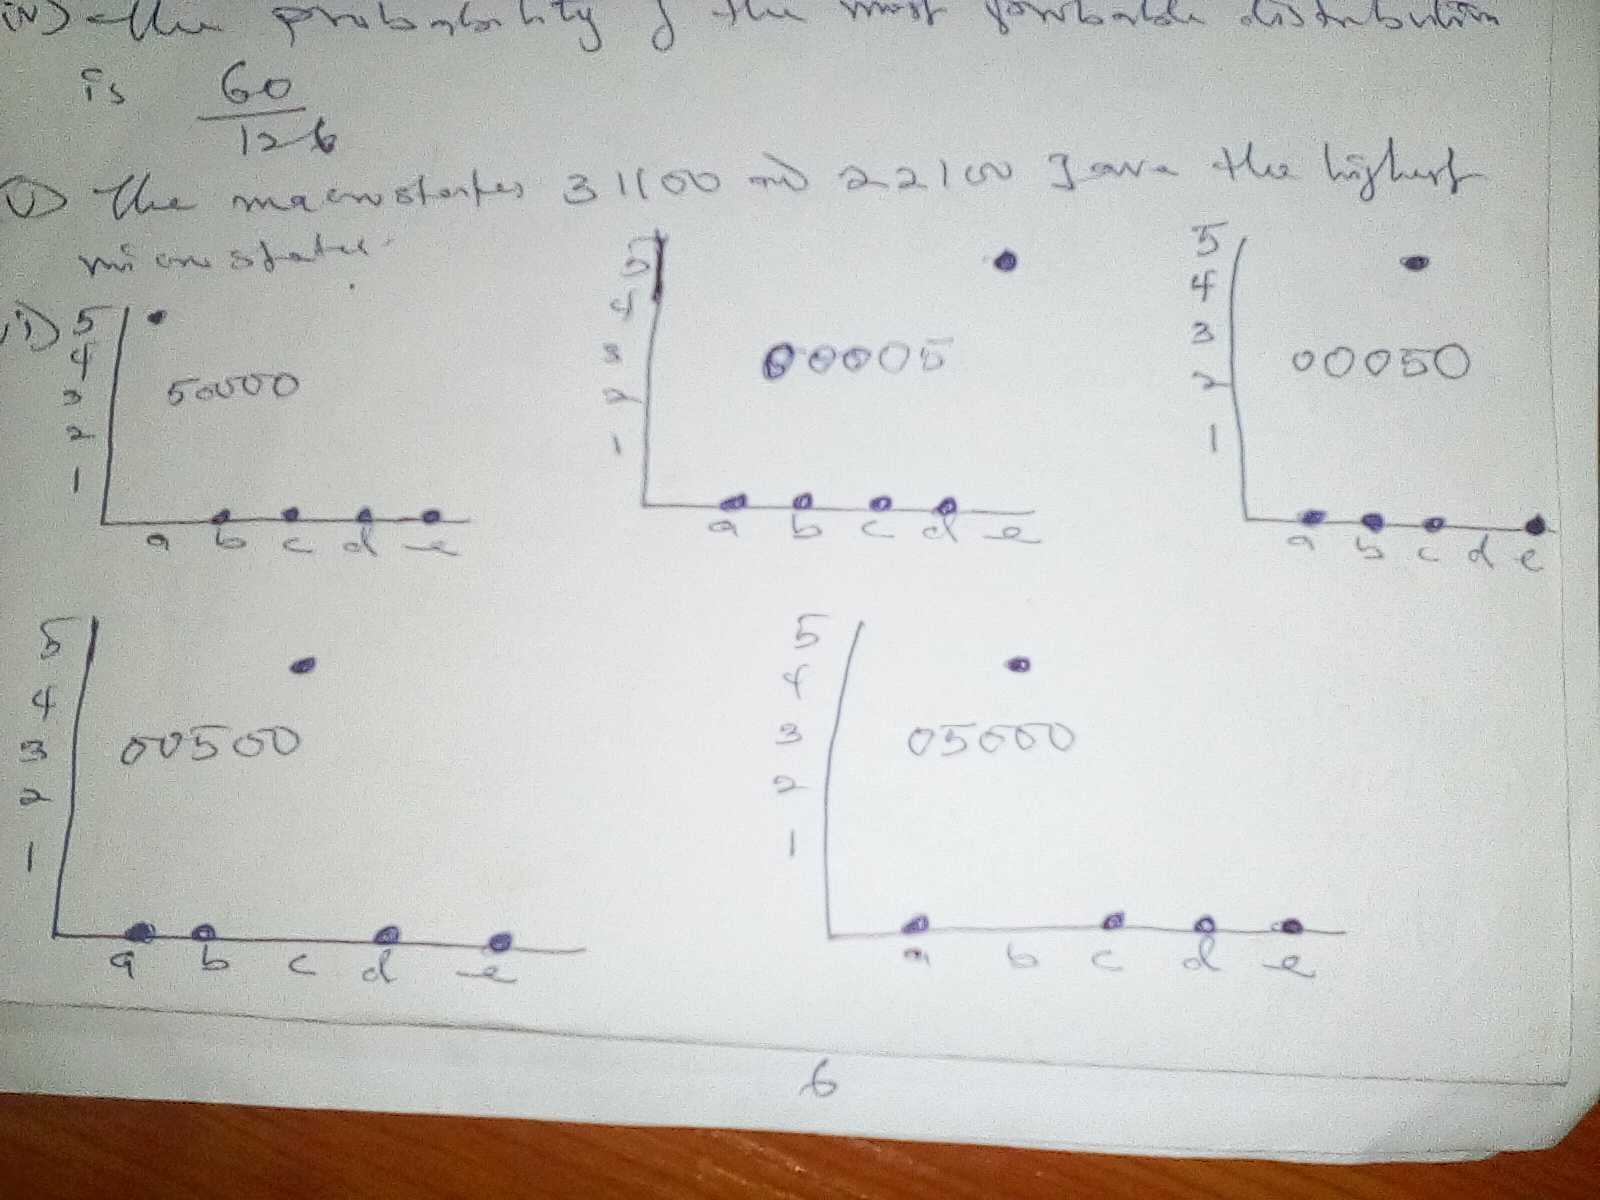 iv) The probability of the most probable distribution
is 60/126
v) The macrostates 31100 and 22100 gave the highest
microstates.
vi)
5
4
3
2
1
50000
a b c d e
5
4
3
2
1
00005
a b c d e
5
4
3
2
1
00050
a b c d e
5
4
3
2
1
00500
a b c d e
5
4
3
2
1
05000
a b c d e
6